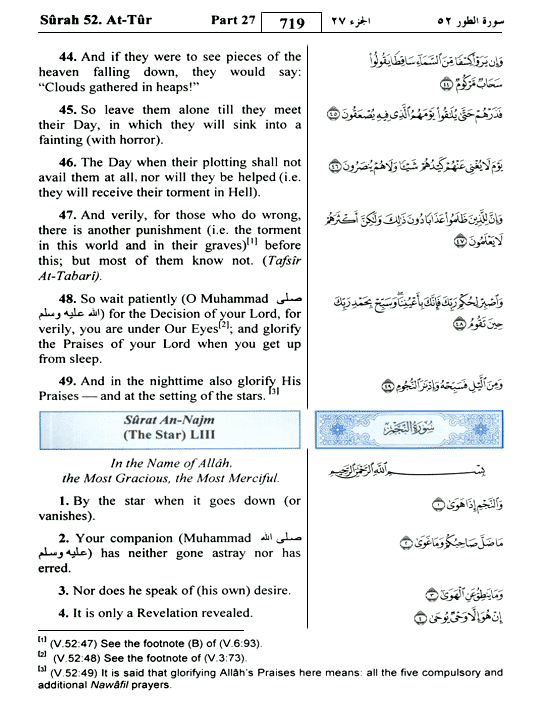 Sûrah 52. At-Tûr Part 27 719 الجزء ٢٧ سورة الطور ٥٢
44. And if they were to see pieces of the
heaven falling down, they would say:
“Clouds gathered in heaps!”
وَإِن يَرَوْا۟ كِسْفًا مِّنَ ٱلسَّمَآءِ سَاقِطًا يَقُولُوا۟
سَحَابٌ مَّرْكُومٌ ٤٤
45. So leave them alone till they meet
their Day, in which they will sink into a
fainting (with horror).
فَذَرْهُمْ حَتَّىٰ يُلَـٰقُوا۟ يَوْمَهُمُ ٱلَّذِى فِيهِ يُصْعَقُونَ ٤٥
46. The Day when their plotting shall not
avail them at all, nor will they be helped (i.e.
they will receive their torment in Hell).
يَوْمَ لَا يُغْنِى عَنْهُمْ كَيْدُهُمْ شَيْـًٔا وَلَا هُمْ يُنصَرُونَ ٤٦
47. And verily, for those who do wrong,
there is another punishment (i.e. the torment
in this world and in their graves)[1] before
this; but most of them know not. (Tafsîr
At-Tabarî).
وَإِنَّ لِلَّذِينَ ظَلَمُوا۟ عَذَابًا دُونَ ذَٰلِكَ وَلَـٰكِنَّ أَكْثَرَهُمْ
لَا يَعْلَمُونَ ٤٧
48. So wait patiently (O Muhammad صلى
الله عليه وسلم) for the Decision of your Lord, for
verily, you are under Our Eyes[2]; and glorify
the Praises of your Lord when you get up
from sleep.
وَٱصْبِرْ لِحُكْمِ رَبِّكَ فَإِنَّكَ بِأَعْيُنِنَا وَسَبِّحْ بِحَمْدِ رَبِّكَ
حِينَ تَقُومُ ٤٨
49. And in the nighttime also glorify His
Praises — and at the setting of the stars. [3]
وَمِنَ ٱلَّيْلِ فَسَبِّحْهُ وَإِدْبَـٰرَ ٱلنُّجُومِ ٤٩
Sûrat An-Najm
(The Star) LIII
سُورَةُ النَّجْمِ
In the Name of Allâh.
the Most Gracious, the Most Merciful.
بِسْمِ ٱللَّهِ ٱلرَّحْمَـٰنِ ٱلرَّحِيمِ
1. By the star when it goes down (or
vanishes).
وَٱلنَّجْمِ إِذَا هَوَىٰ ١
2. Your companion (Muhammad صلى الله
عليه وسلم) has neither gone astray nor has
erred.
مَا ضَلَّ صَاحِبُكُمْ وَمَا غَوَىٰ ٢
3. Nor does he speak of (his own) desire.
وَمَا يَنطِقُ عَنِ ٱلْهَوَىٰٓ ٣
4. It is only a Revelation revealed.
إِنْ هُوَ إِلَّا وَحْىٌ يُوحَىٰ ٤
[1] (V.52:47) See the footnote (B) of (V.6:93).
[2] (V.52:48) See the footnote of (V.3:73).
[3] (V.52:49) It is said that glorifying Allâh’s Praises here means: all the five compulsory and
additional Nawâfil prayers.